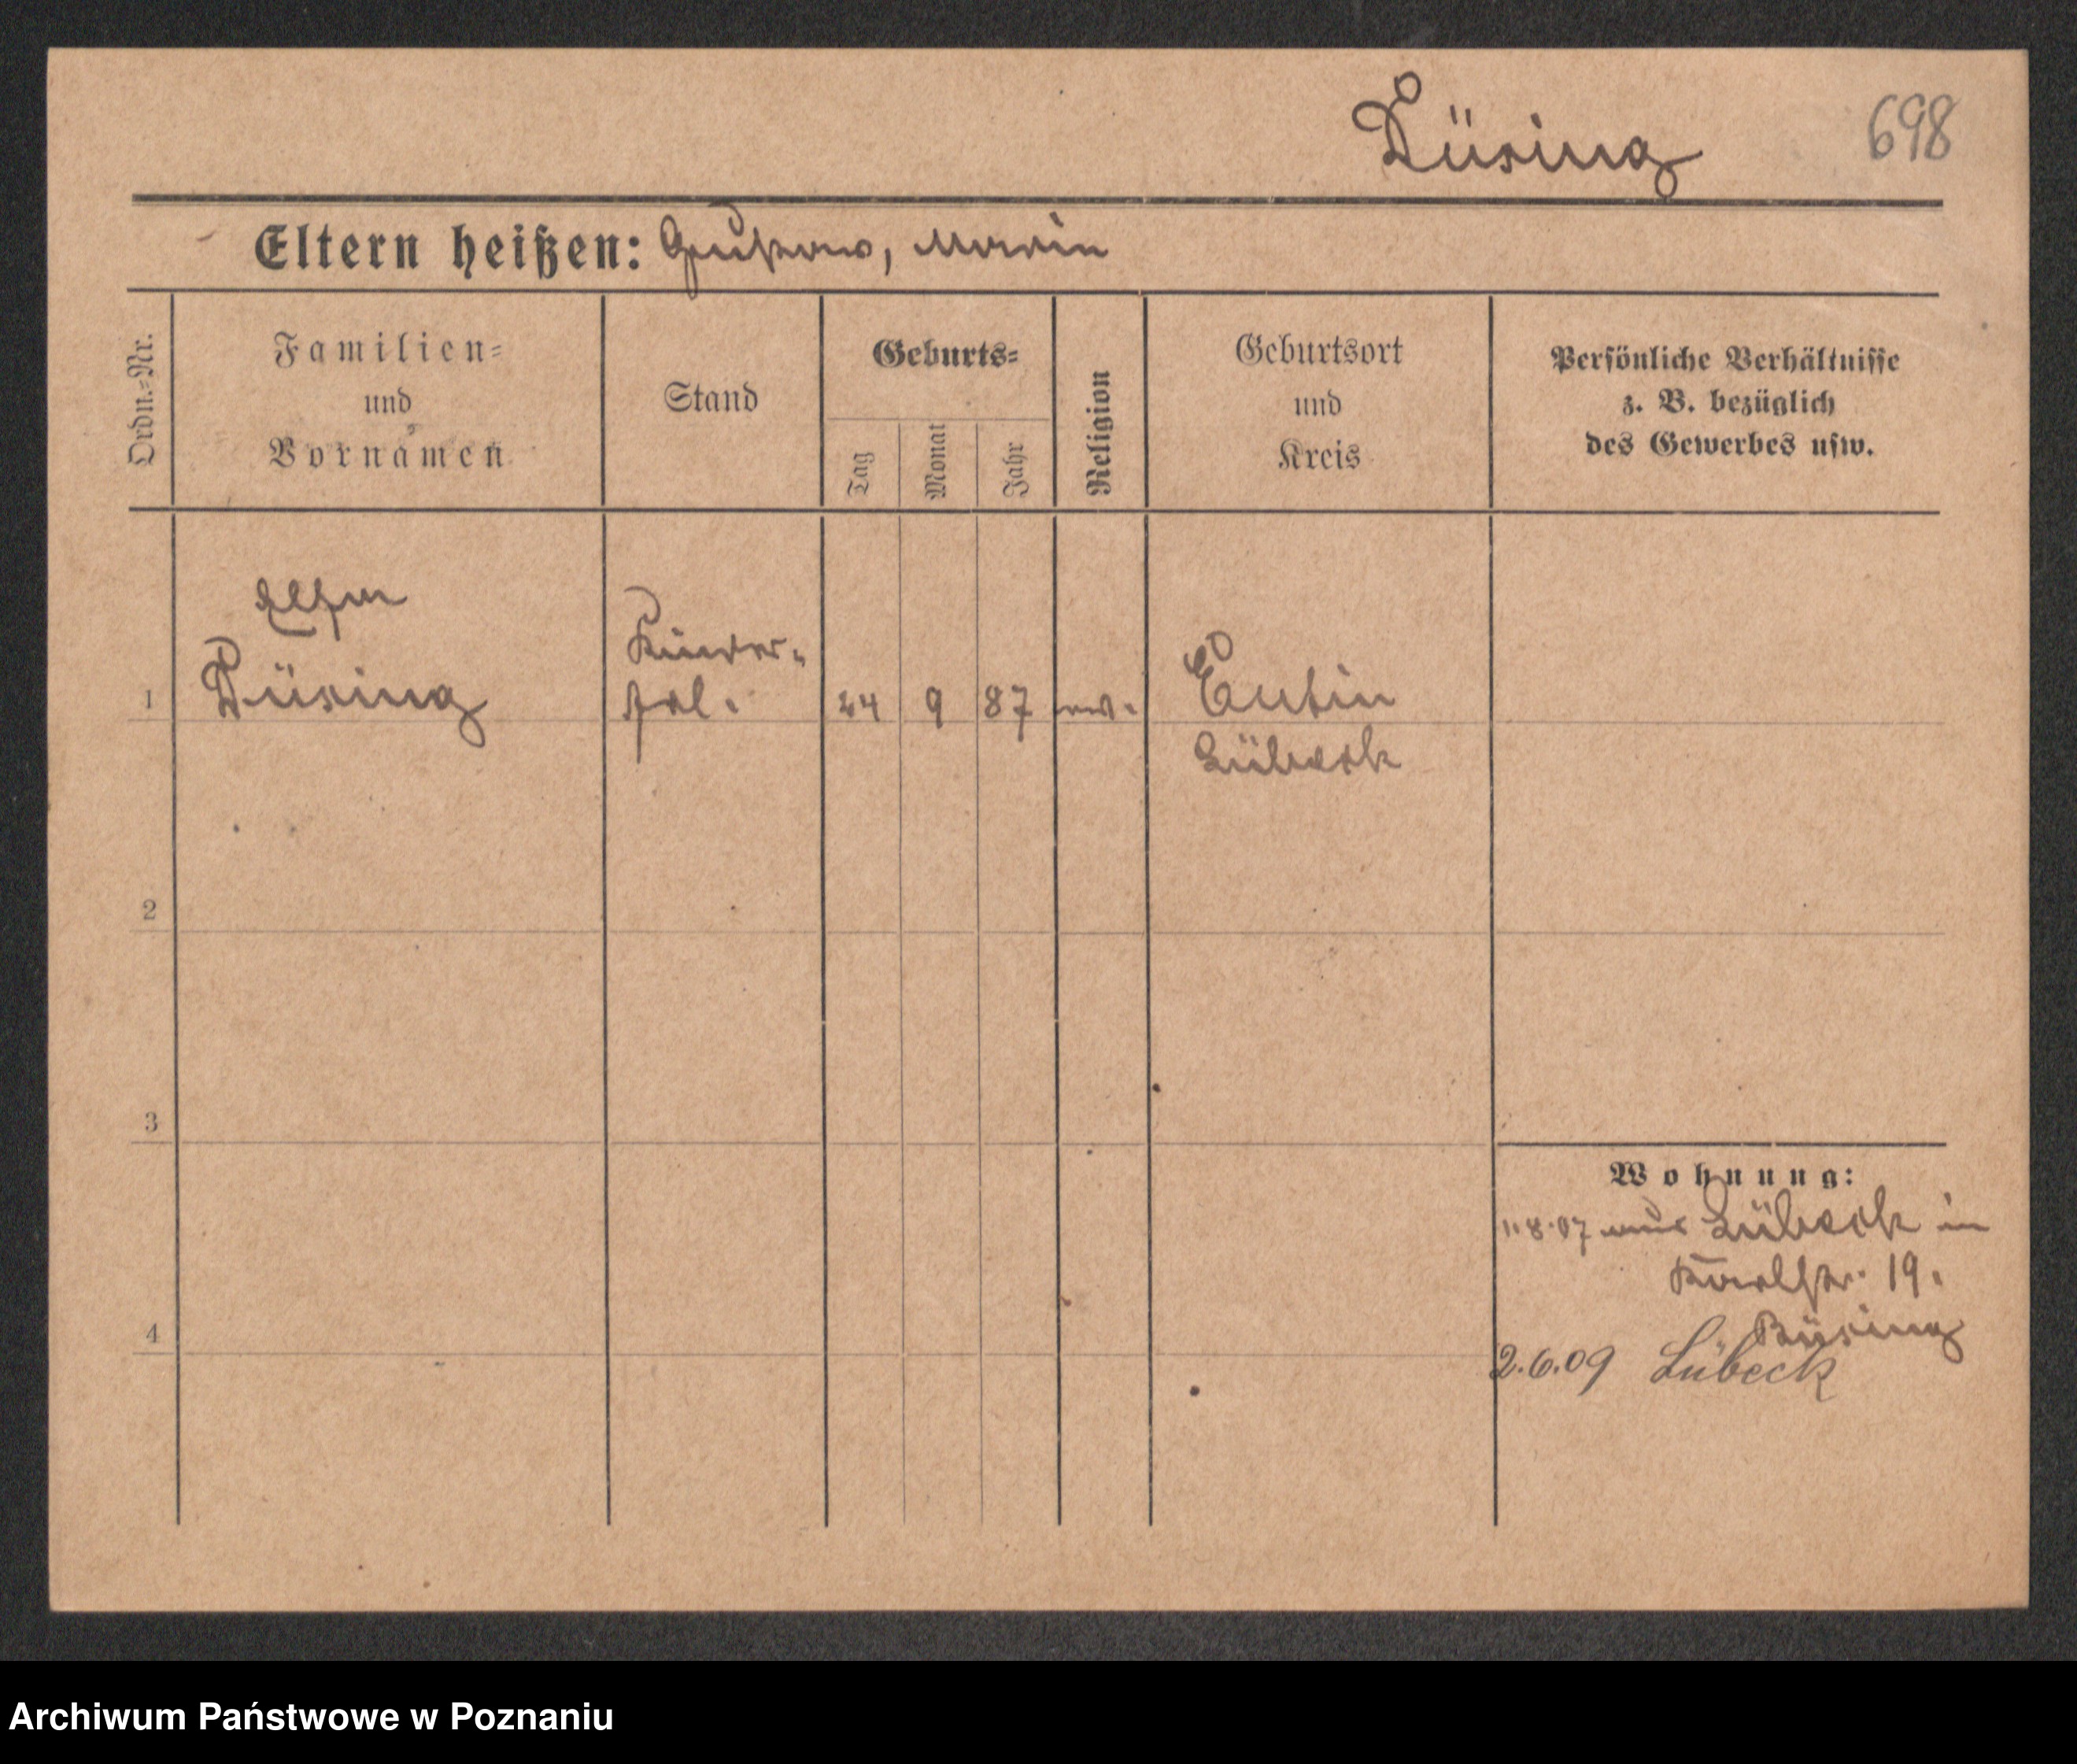 Büsing 698
Eltern heißen: Gustav, Maria
Ordn.-Nr.
Familien-
und
Vornamen
Stand
Geburts-
Tag
Monat
Jahr
Religion
Geburtsort
und
Kreis
Persönliche Verhältnisse
z. B. bezüglich
des Gewerbes usw.
Kinder-
1 Büsing frl. 24 9 87 ev. Eutin
Lübeck
2
3
Wohnung:
1.8.07 aus Lübeck in
Karlstr. 19.
4 Büsing
2.6.09 Lübeck
Archiwum Państwowe w Poznaniu